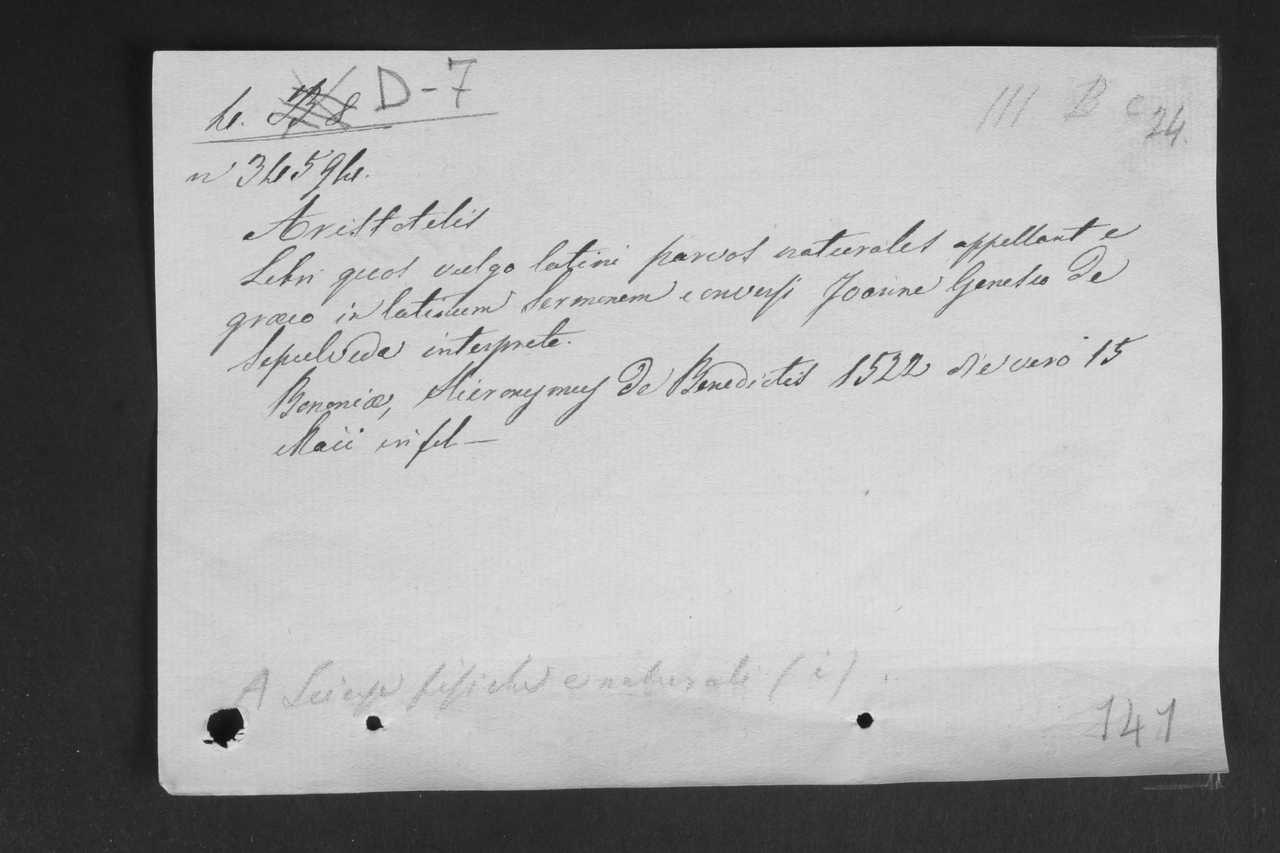 4. B 8 D-7
III B c 24.
n 34594.
Aristotelis
Libri quos vulgo latini parvos naturales appellant e
græco in latinum sermonem conversi Joanne Genesio de
Sepulveda interprete.
Bononiæ, Hieronymus de Benedictis 1522 die vero 15
Maii in fol—
A Scienze fisiche e naturali (i).
141